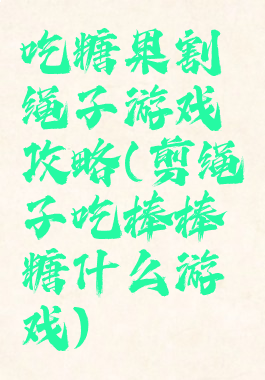 吃糖果割
绳子游戏
攻略(剪绳
子吃棒棒
糖什么游
戏)